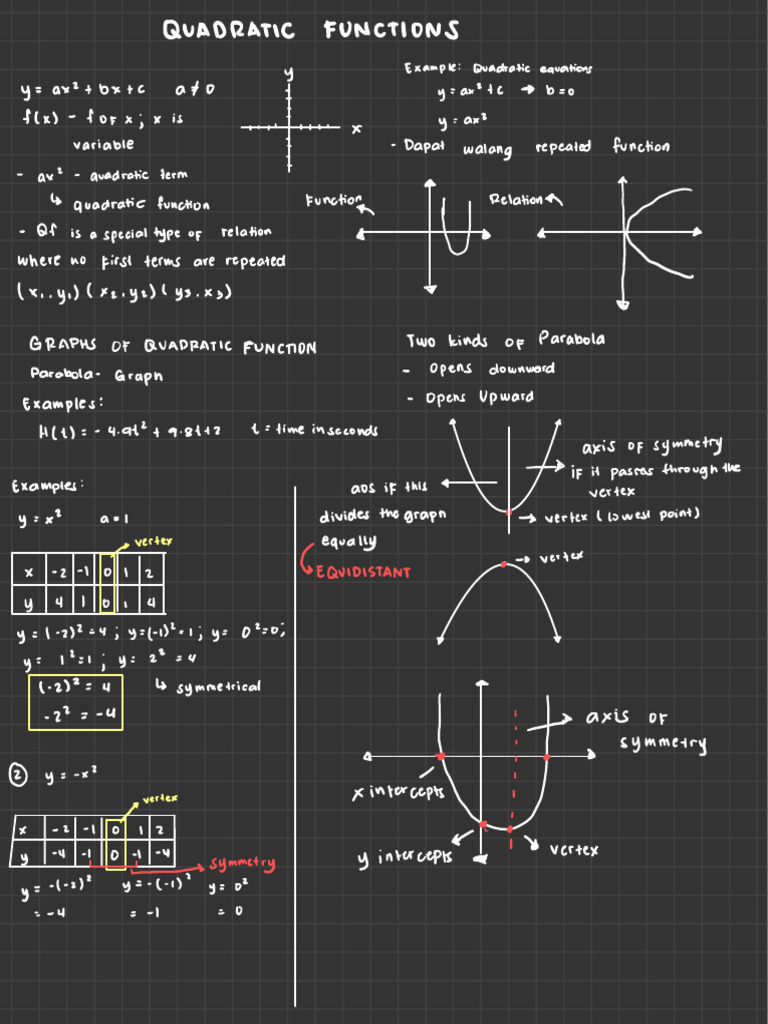 QUADRATIC FUNCTIONS
y = ax² + bx + c a ≠ 0
f(x) - f OF x; x is
variable
- ax² - quadratic term
↳ quadratic function
- QF is a special type of relation
where no first terms are repeated
(x₁, y₁) (x₂, y₂) (y₃, x₃)
y
x
Example: Quadratic equations
y = ax² + c → b = 0
y = ax²
- Dapat walang repeated function
Function
Relation
GRAPHS OF QUADRATIC FUNCTION
Parabola - Graph
Examples:
H(t) = -4.9t² + 9.8t + 2 t = time in seconds
Two kinds of Parabola
- Opens downward
- Opens Upward
axis of symmetry
if it passes through the
vertex
vertex (lowest point)
aos if this
divides the graph
equally
EQUIDISTANT
vertex
Examples:
y = x² a = 1
vertex
x -2 -1 0 1 2
y 4 1 0 1 4
y = (-2)² = 4; y = (-1)² = 1; y = 0² = 0;
y = 1² = 1; y = 2² = 4
(-2)² = 4 ↳ symmetrical
-2² = -4
② y = -x²
vertex
x -2 -1 0 1 2
y -4 -1 0 -1 -4
symmetry
y = -(-2)² y = -(-1)² y = 0²
= -4 = -1 = 0
axis of
symmetry
x intercepts
y intercepts
vertex